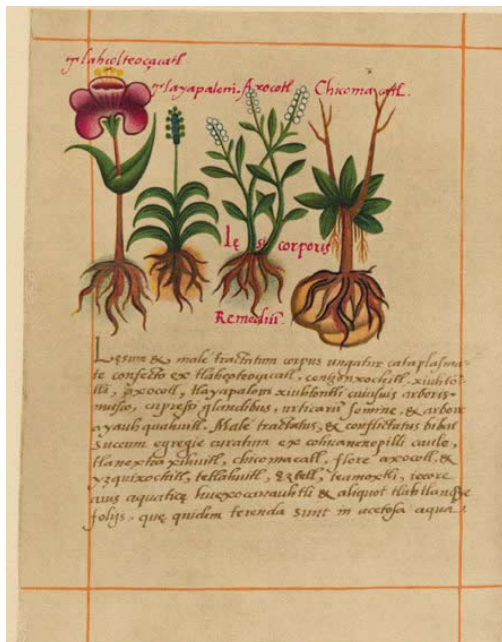 Tlahçolteoçacatl
Tlayapaloni. Axocotl. Chicomacatl.
Lęsi corporis
Remediũ.
Lęsum & male tractatum corpus ungatur cataplasma-
te confecto ex tlahçolteoçacatl, centzonxochitl. xiuhto-
tli, axocotl, tlayapaloni xiuhtontli cuiusuis arboris
musco, cupressi glandibus, urticarũ semine, & arbore
ayauh quahuitl. Male tractatus, & conflictatus bibat
succum egregie curatum ex cohuanenepilli caule,
tlanextia xihuitl, chicomacatl, flore axocotl, &
yzquixochitl, tetlahuitl, eztetl, teamoxtli, iecore
auis aquaticę huexocanauhtli & aliquot tlahtlanqye
folijs. quę quidem terenda sunt in acetosa aqua.